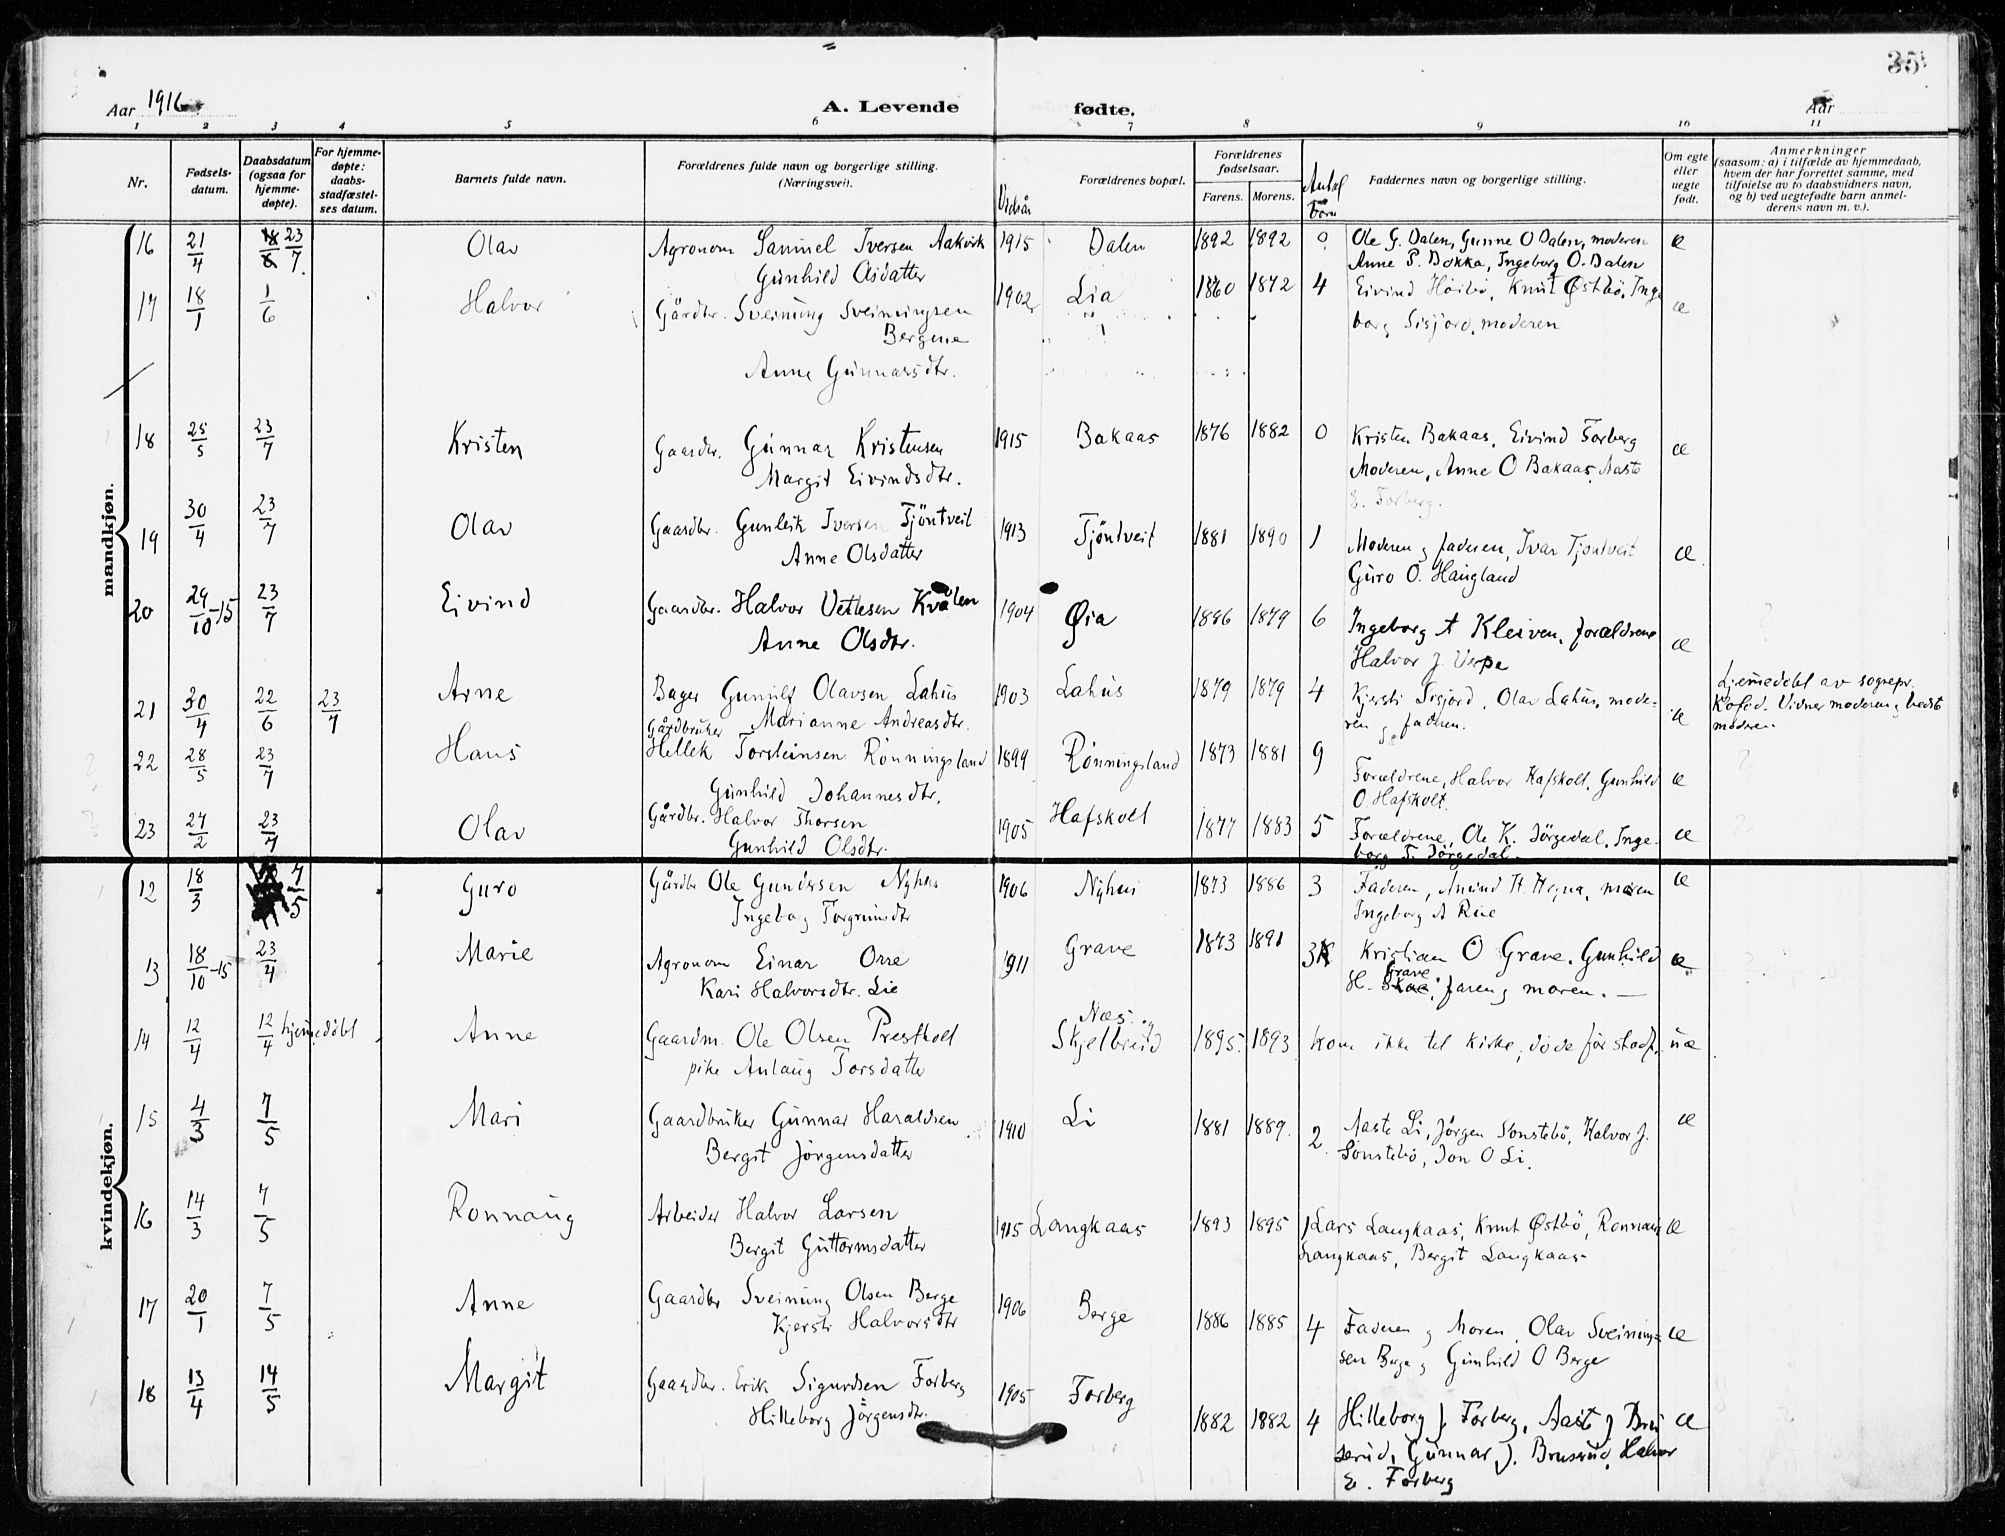 35
Aar 1916
A. Levende fødte.
Aar
1 2 3 4 5 6 7 8 9 10 11
Nr.
Fødsels-
datum.
Daabsdatum
(ogsaa for
hjemme-
døpte).
For hjemme-
døpte:
daabs-
stadfæstel-
ses datum.
Barnets fulde navn.
Forældrenes fulde navn og borgerlige stilling.
(Næringsvei).
Vidsår
Forældrenes bopæl.
Forældrenes
fødselsaar.
Farens. Morens.
Antal
børn
Faddernes navn og borgerlige stilling.
Om egte
eller
uegte
født.
Anmerkninger
(saasom: a) i tilfælde av hjemmedaab,
hvem der har forrettet samme, med
tilføielse av to daabsvidners navn,
og b) ved uegtefødte barn anmel-
derens navn m. v.).
mandkjøn.
16 21/4 23/7 Olav Agronom Samuel Iversen Aakvik 1915 Dalen 1892 1892 0 Ole G. Dalen, Gunne O Dalen, moderen æ
Gunhild Olsdatter Anne P. Bokka, Ingeborg O. Dalen
17 18/1 1/6 Halvor Gårdbr. Sveinung Sveinungsen 1902 Lia 1860 1872 4 Eivind Høibø, Knut Østbø, Inge æ
Bergene borg Sisjord, moderen
Anne Gunnarsdtr.
18 25/5 23/7 Kristen Gaardbr. Gunnar Kristensen 1915 Bakaas 1876 1882 0 Kristen Bakaas, Eivind Forberg æ
Margit Eivindsdtr. Moderen, Anne O Bakaas, Aaste
E. Forberg.
19 30/4 23/7 Olav Gaardbr. Gunleik Iversen Tjöntveit 1913 Tjöntveit 1881 1890 1 Moderen g faderen, Ivar Tjöntveit æ
Anne Olsdatter Guro O. Haugland
20 29/10-15 23/7 Eivind Gaardbr. Halvor Vetlesen Kvålen 1904 Øia 1886 1879 6 Ingeborg A Kleiven, forældrene æ
Anne Olsdtr. Halvor J. Verpe
21 30/4 22/6 23/7 Arne Bager Gunulf Olavsen Lahus 1903 Lahus 1879 1879 4 Kjersti Sisjord, Olav Lahus, mode- æ Hjemmedøbt av sognepr.
Marianne Andreasdtr. ren g faderen. Kofod. Vidner moderen g bedste
moderen
22 28/5 23/7 Hans Gårdbruker
Hellek Torsteinsen Rönningsland 1899 Rönningsland 1873 1881 9 Forældrene, Halvor Hafskolt, Gunhild æ
Gunhild Johannesdtr. O. Hafskolt.
23 27/2 23/7 Olav Gårdbr. Halvor Thorsen 1905 Hafskolt 1877 1883 5 Forældrene, Ole K. Jörgedal, Inge- æ
Gunhild Olsdtr. borg T. Jörgedal.
kvindekjøn.
12 18/3 7/5 Guro Gårdbr Ole Gundersen Nyhus 1906 Nyhus 1873 1886 3 Faderen, Amund H. Hegna, moren æ
Ingeborg Torgrimsdtr Ingeborg A Rue
13 18/10-15 23/4 Marie Agronom Einar Orre 1911 Grave 1873 1891 3 Kristian O Grave, Gunhild æ
Kari Halvorsdtr. Lie H. Grave, faren g moren. —
14 12/4 12/4 hjemmedøbt Anne Gaardm. Ole Olsen Prestholt Næs g
Skjelbreid 1895 1893 kom ikke til kirke, döde för stadf. uæ
pike Aslaug Torsdatter
15 4/3 7/5 Mari Gaardbruker Gunnar Haraldsen 1910 Li 1881 1889 2 Aaste Li, Jörgen Sönstebö, Halvor J. æ
Bergit Jörgensdatter Sönstebö, Jon O Li.
16 14/3 7/5 Ronnaug Arbeider Halvor Larsen 1915 Langkaas 1893 1895 1 Lars Langkaas, Knut Østbö, Ronnaug æ
Bergit Guttormsdatter Langkaas, Bergit Langkaas
17 20/1 7/5 Anne Gaardbr Sveinung Olsen Berge 1906 Berge 1886 1885 4 Faderen g Moren, Olav Sveinung- æ
Kjersti Halvorsdtr sen Berge g Gunhild O Berge
18 13/4 14/5 Margit Gaardbr. Erik Sigurdsen Forberg 1905 Forberg 1882 1882 4 Hilleborg J. Forberg, Aaste J Bru æ
Hilleborg Jörgensdtr. serud, Gunnar J. Bruserud, Halvor
E. Forberg